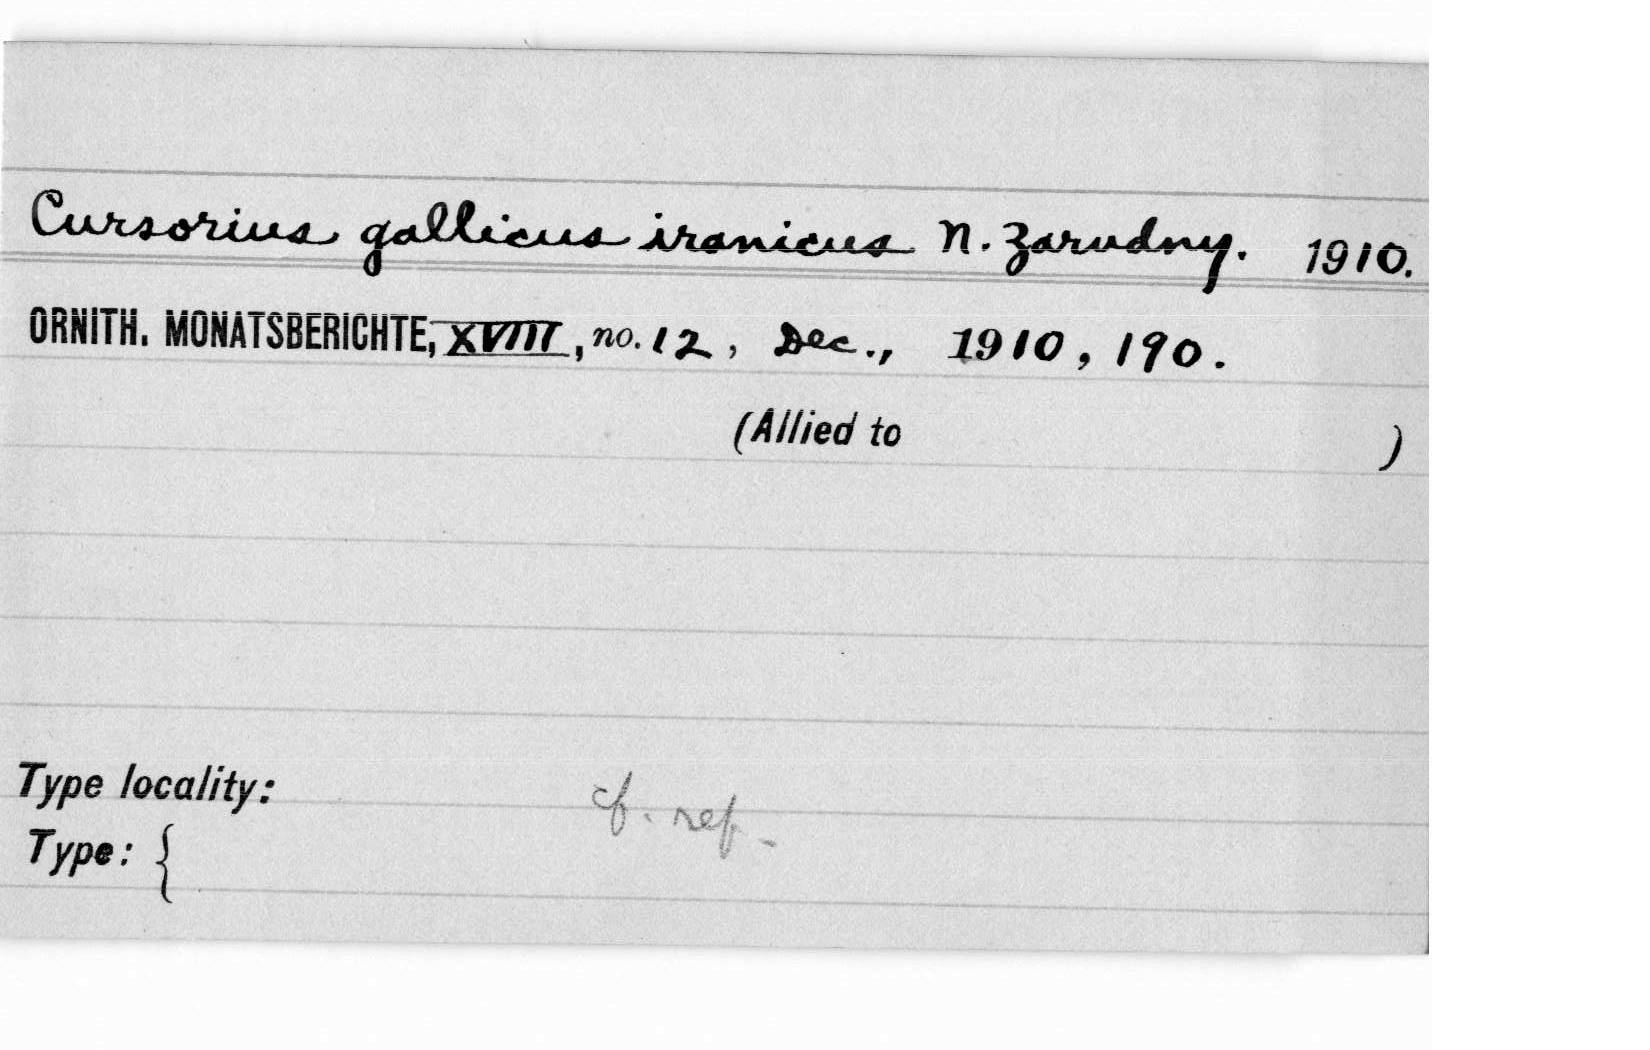 Cursorius gallicus iranicus N. Zarudny. 1910.
ORNITH. MONATSBERICHTE, XVIII, no. 12, Dec., 1910, 190.
(Allied to )
Type locality:
cf. ref.
Type: {